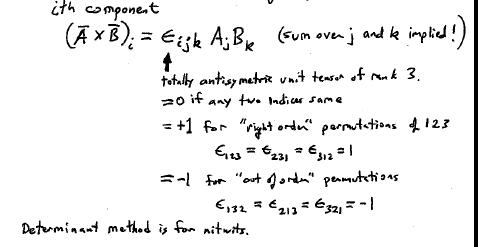 ith component
(A̅ × B̅)ᵢ = ϵᵢⱼₖ AⱼBₖ (sum over j and k implied!)
totally antisymetric unit tensor of rank 3.
=0 if any two indices same
=+1 for "right order" permutations of 123
ϵ₁₂₃ = ϵ₂₃₁ = ϵ₃₁₂ = 1
=-1 for "out of order" permutations
ϵ₁₃₂ = ϵ₂₁₃ = ϵ₃₂₁ = -1
Determinant method is for nitwits.